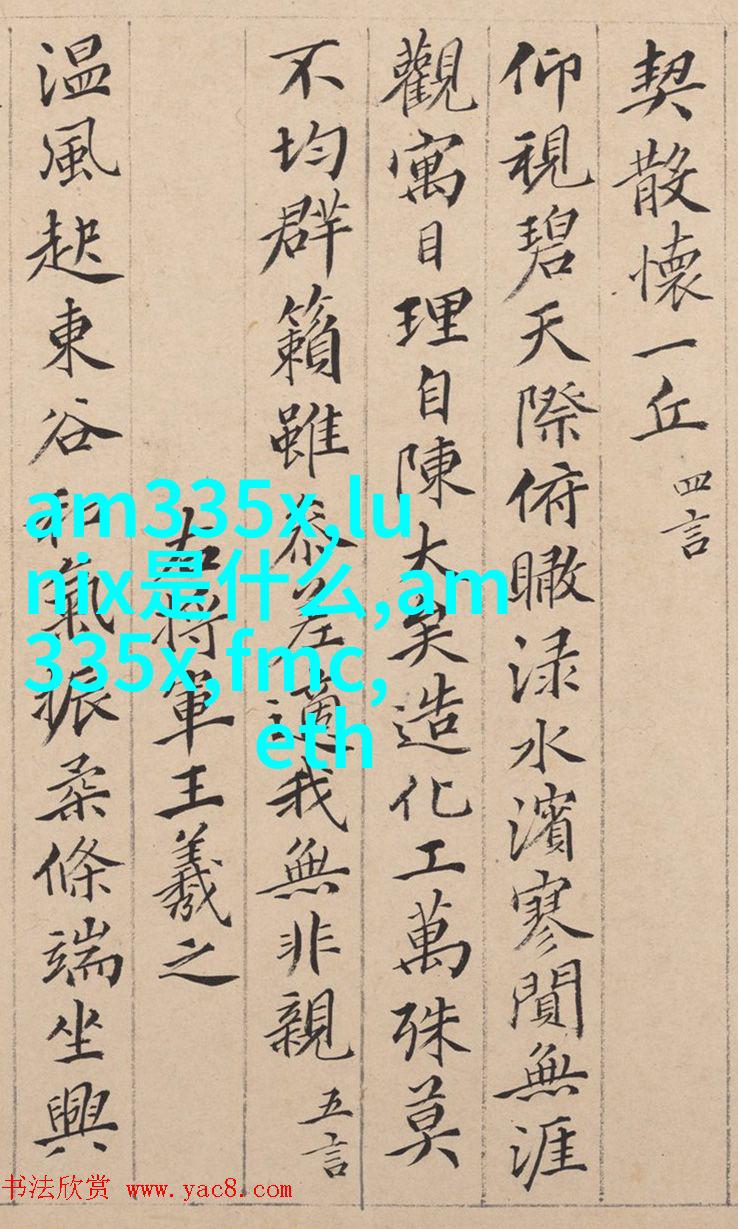 契散懷一丘 四言
仰視碧天際俯瞰淥水濱寥閴無涯
觀寓目理自陳大矣造化工萬殊莫
不均群籟雖參差適我無非親 五言
右將軍王羲之
温風起東谷和氣振柔條端坐興
am335x,lu
nix是什么,am
335x,fmc,
eth
书法欣赏 www.yac8.com